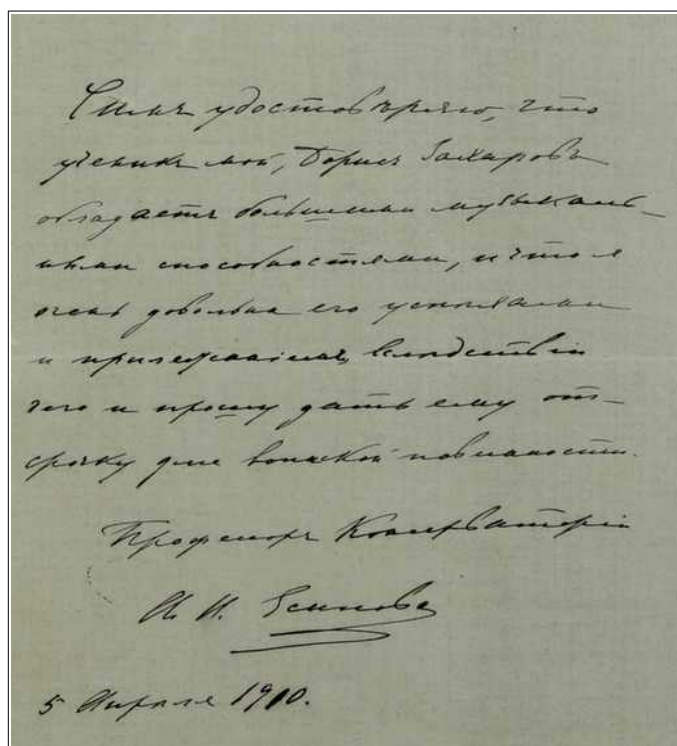 Симъ удостовѣряю, что
ученикъ мой, Борисъ Захаровъ
обладаетъ большими музыкаль-
ными способностями, и что я
очень довольна его успѣхами
и прилежаніемъ, вслѣдствіи
чего и прошу дать ему от-
срочку для воинской повинности.
Профессоръ Консерваторіи
А. Н. Есипова
5 Апрѣля 1910.